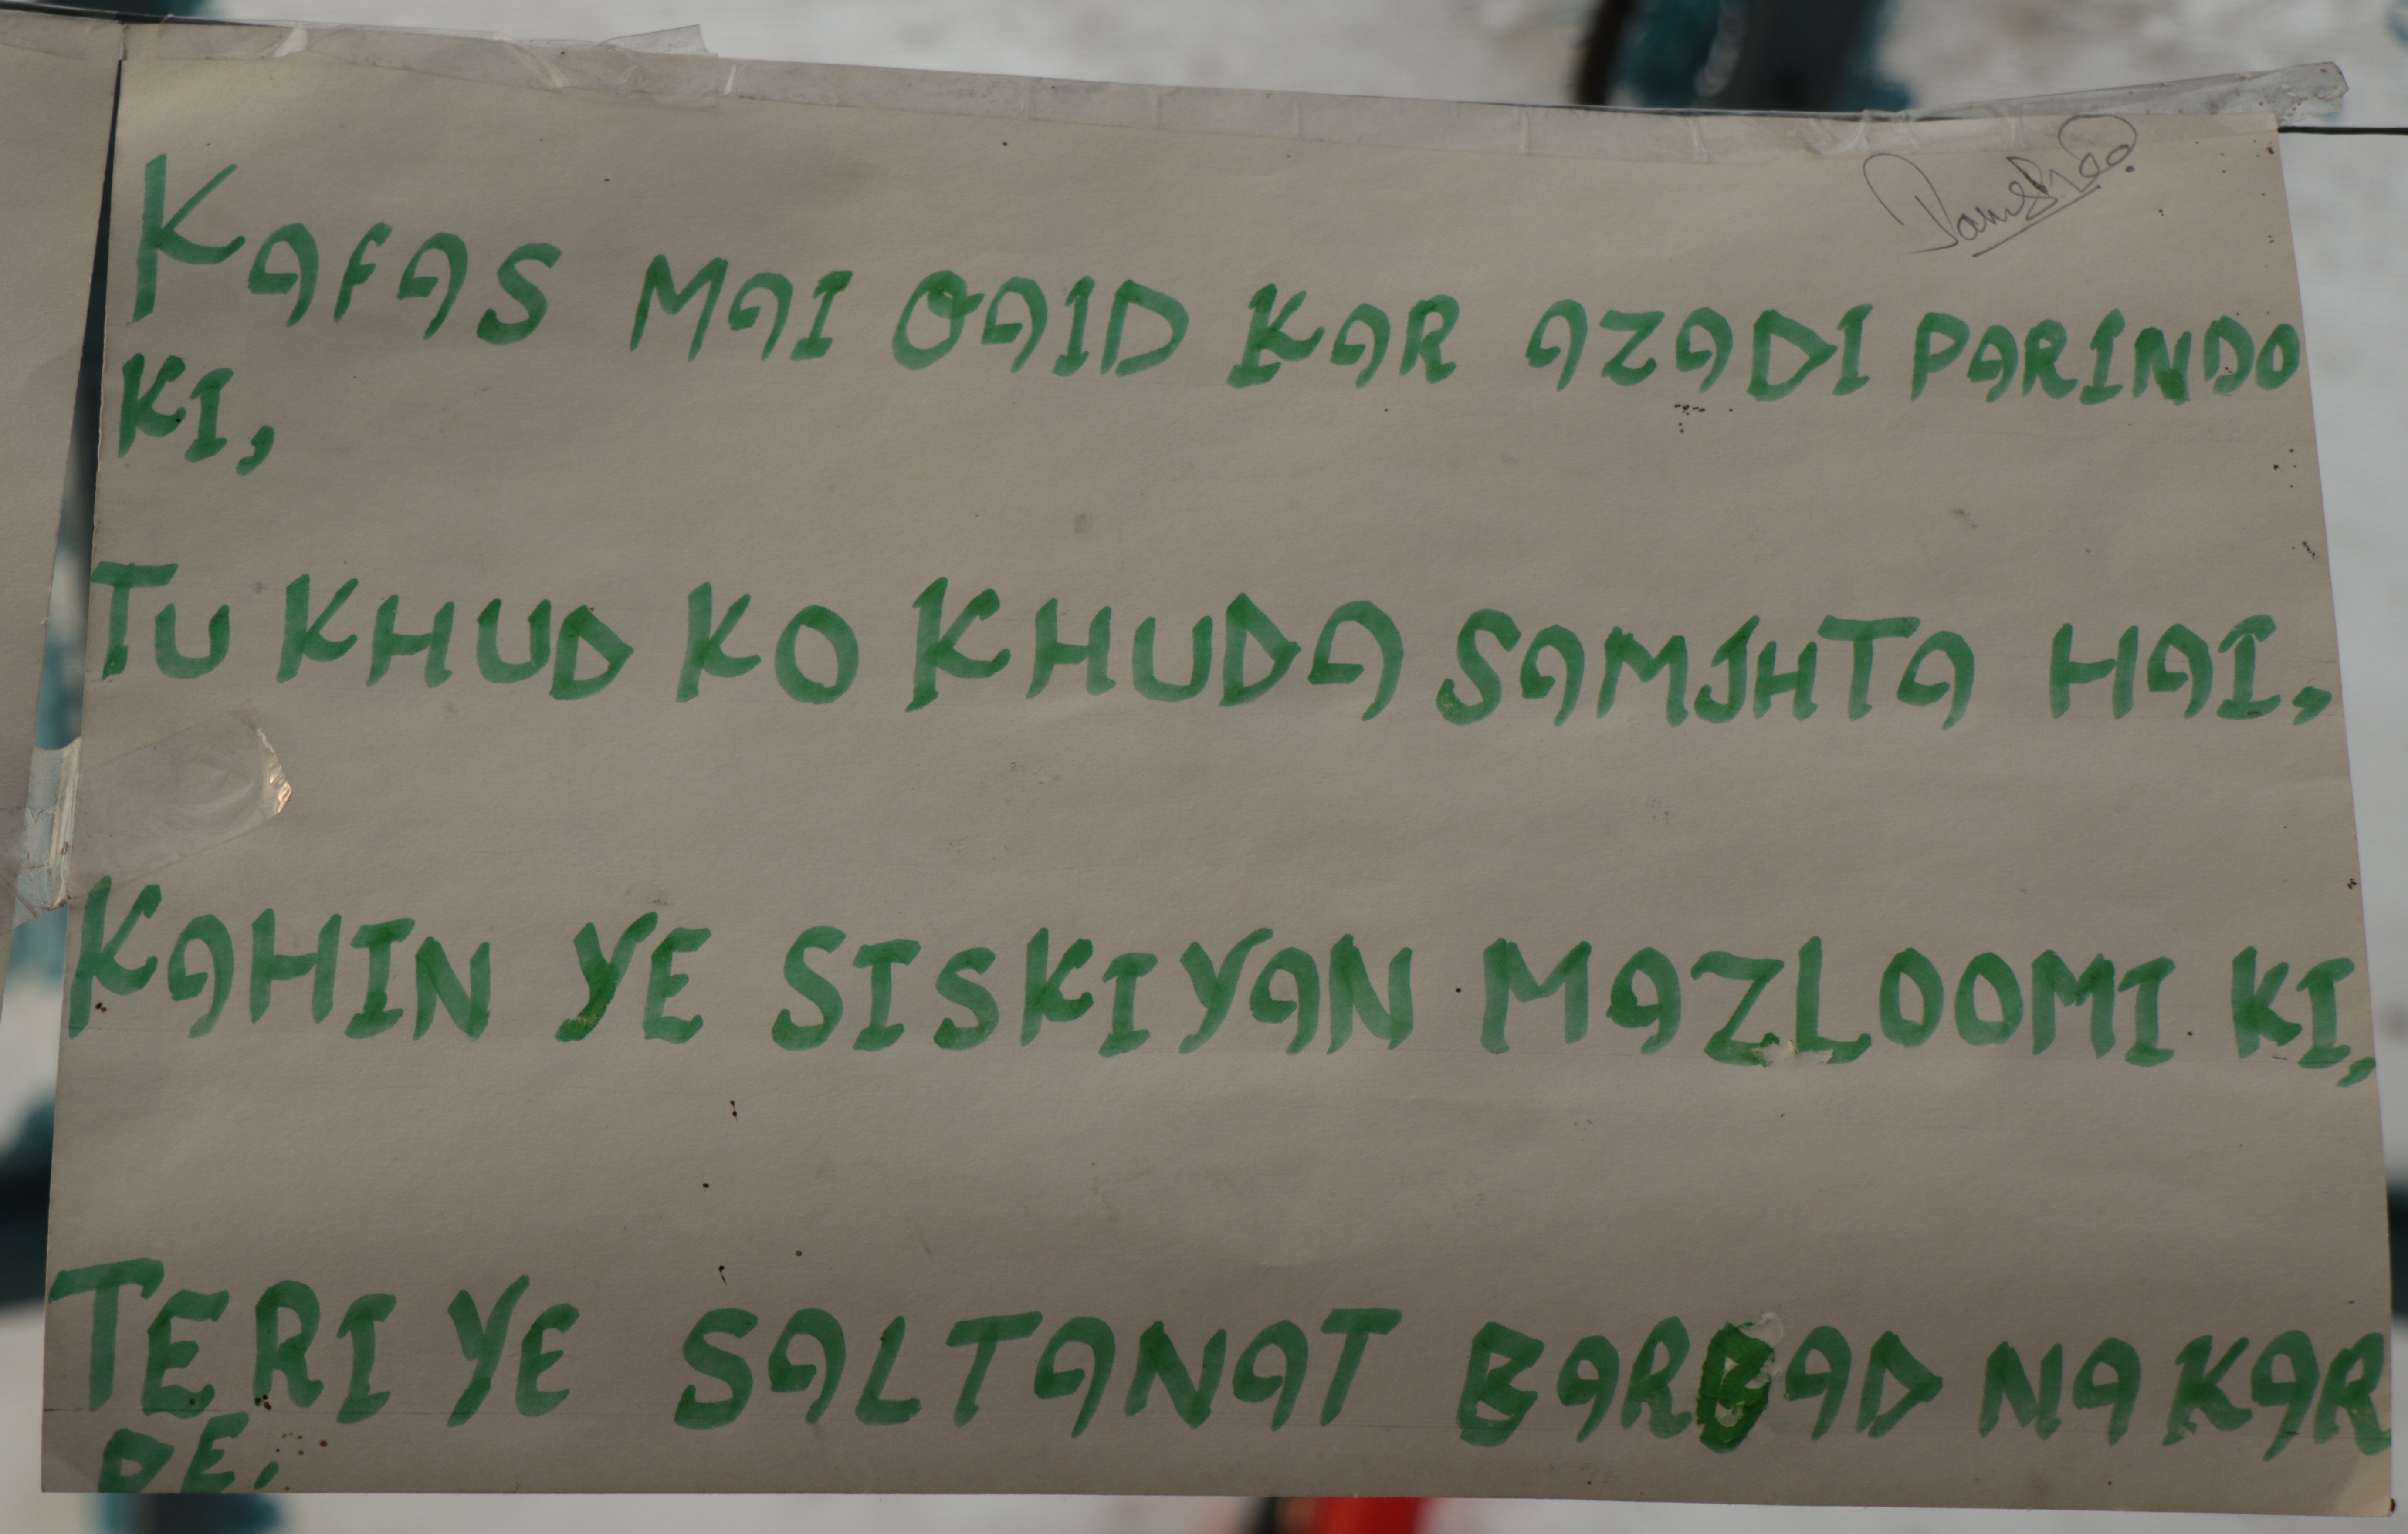 KAFAS MAI QAID KAR AZADI PARINDO
KI,
TU KHUD KO KHUDA SAMJHTA HAI,
KAHIN YE SISKIYAN MAZLOOMI KI,
TERI YE SALTANAT BARBAD NA KAR
DE,